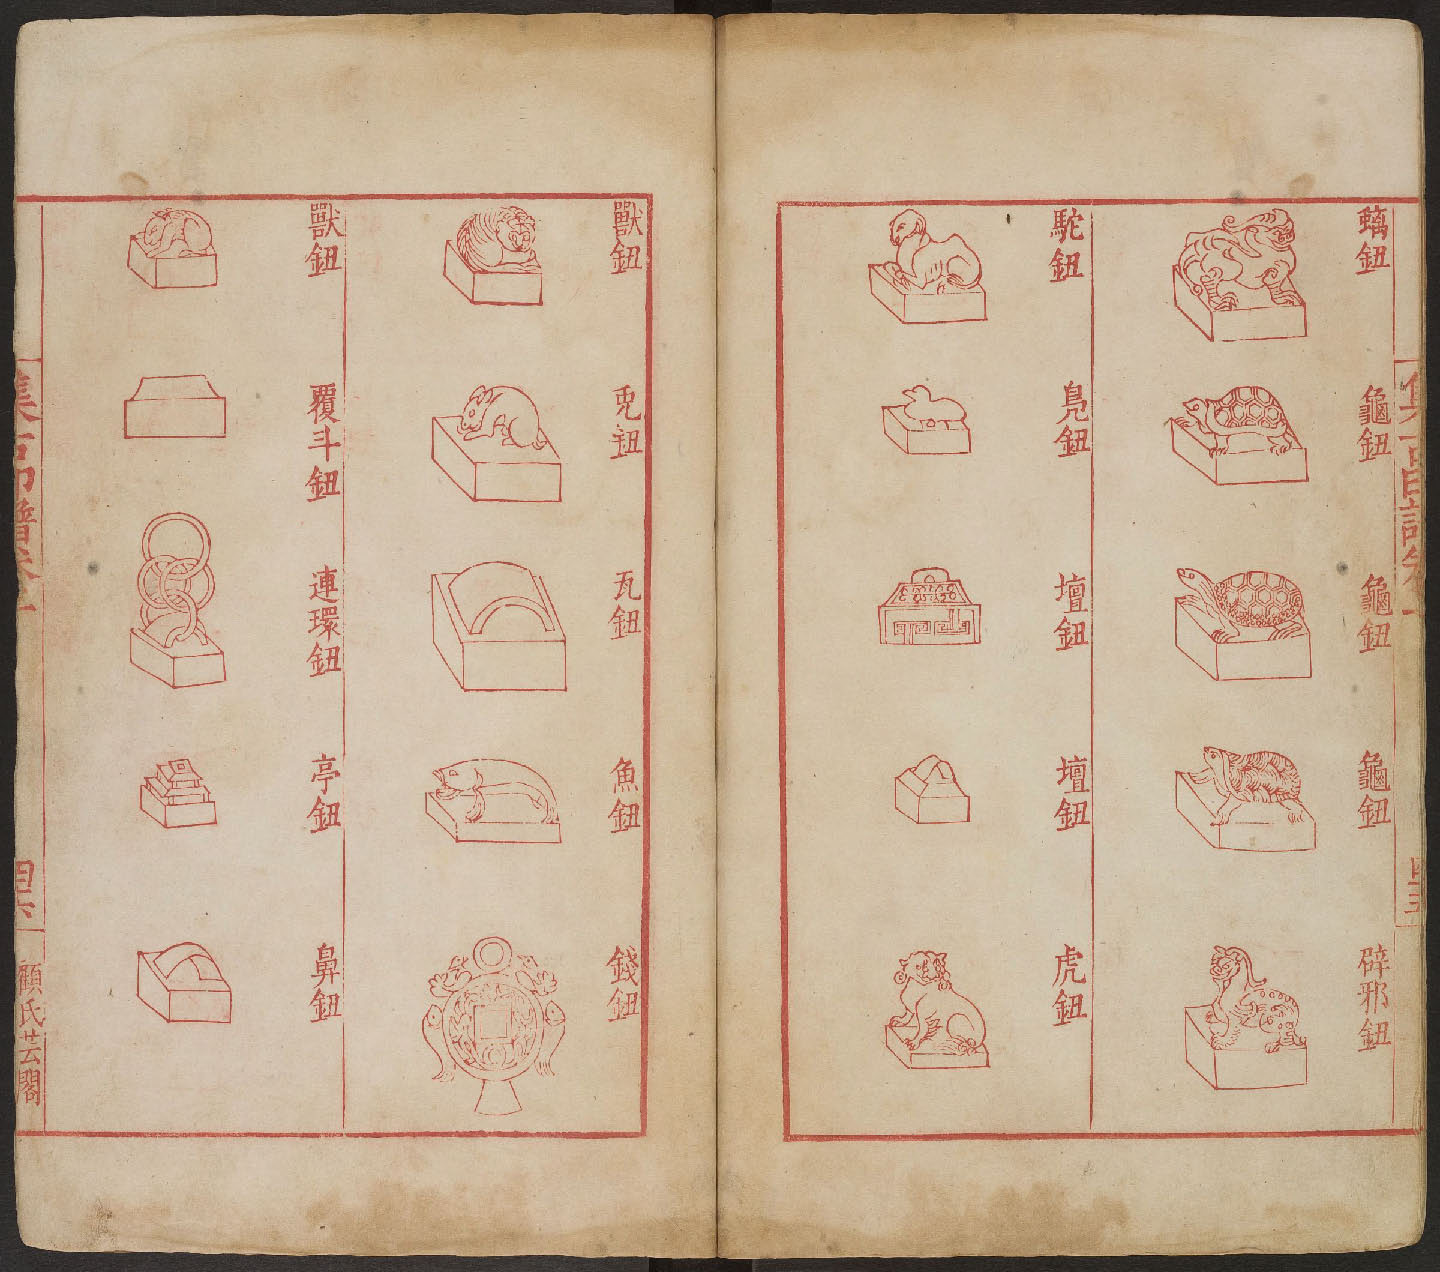 螭鈕
龜鈕
龜鈕
龜鈕
辟邪鈕
駝鈕
鳧鈕
壇鈕
壇鈕
虎鈕
獸鈕
兎鈕
瓦鈕
魚鈕
錢鈕
獸鈕
覆斗鈕
連環鈕
亭鈕
鼻鈕
集古印譜卷一
四六
顧氏芸閣